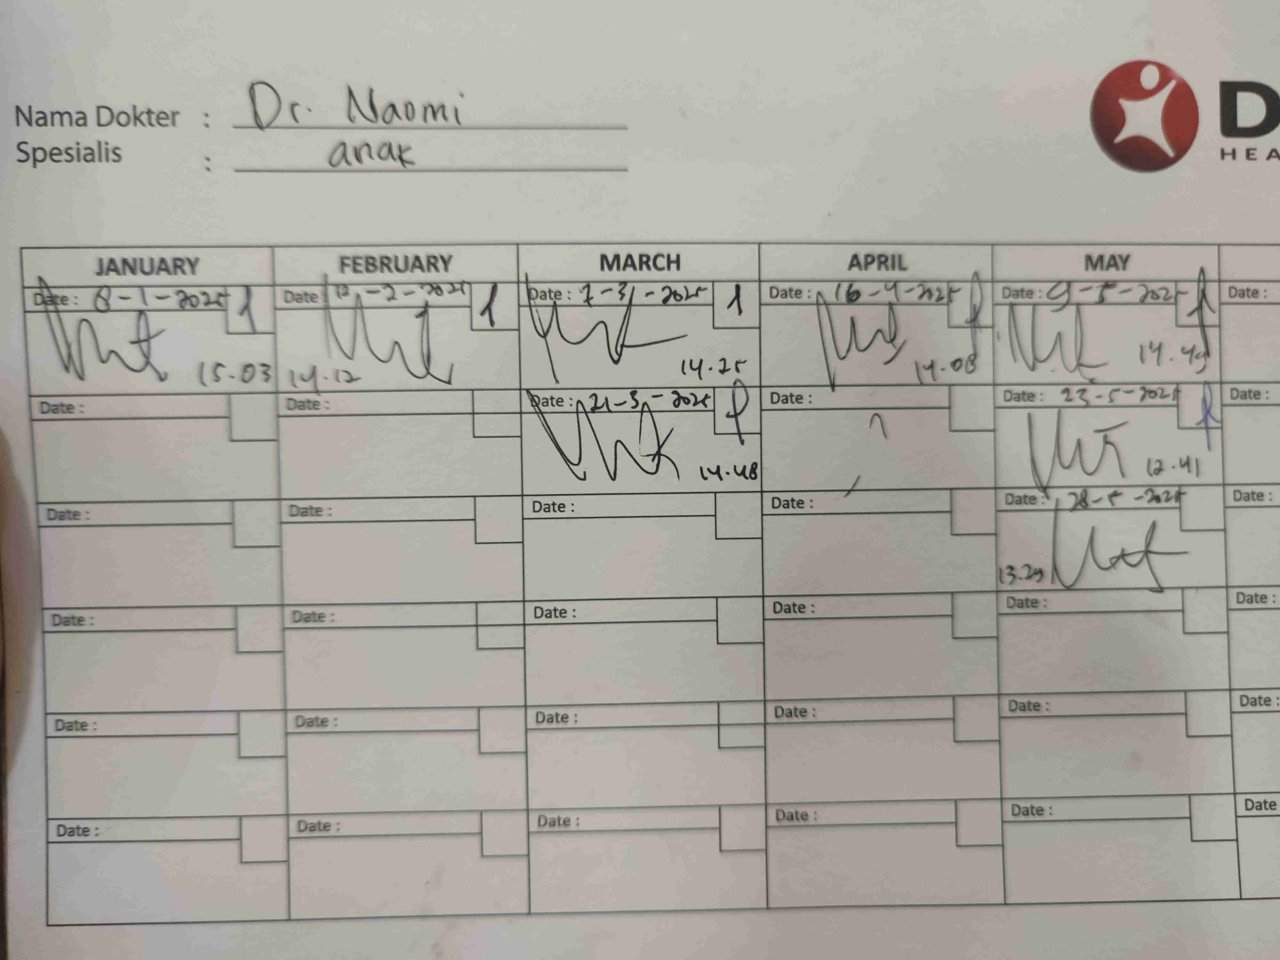 Nama Dokter : Dr. Naomi
Spesialis : anak
D
HEA
JANUARY FEBRUARY MARCH APRIL MAY
Date : 8-1-2025 1 Date 12-2-2025 1 Date : 7-3-2025 1 Date : 16-4-2025 Date : 9-5-2025 Date :
15.03 14.12 14.25 14.08 14.49
Date : Date : Date : 21-3-2025 Date : Date : 23-5-2025 Date :
14.48 12.41
Date : Date : Date : Date : Date : 28-5-2025 Date :
13.29
Date : Date : Date : Date : Date : Date :
Date : Date : Date : Date : Date : Date :
Date : Date : Date : Date : Date : Date